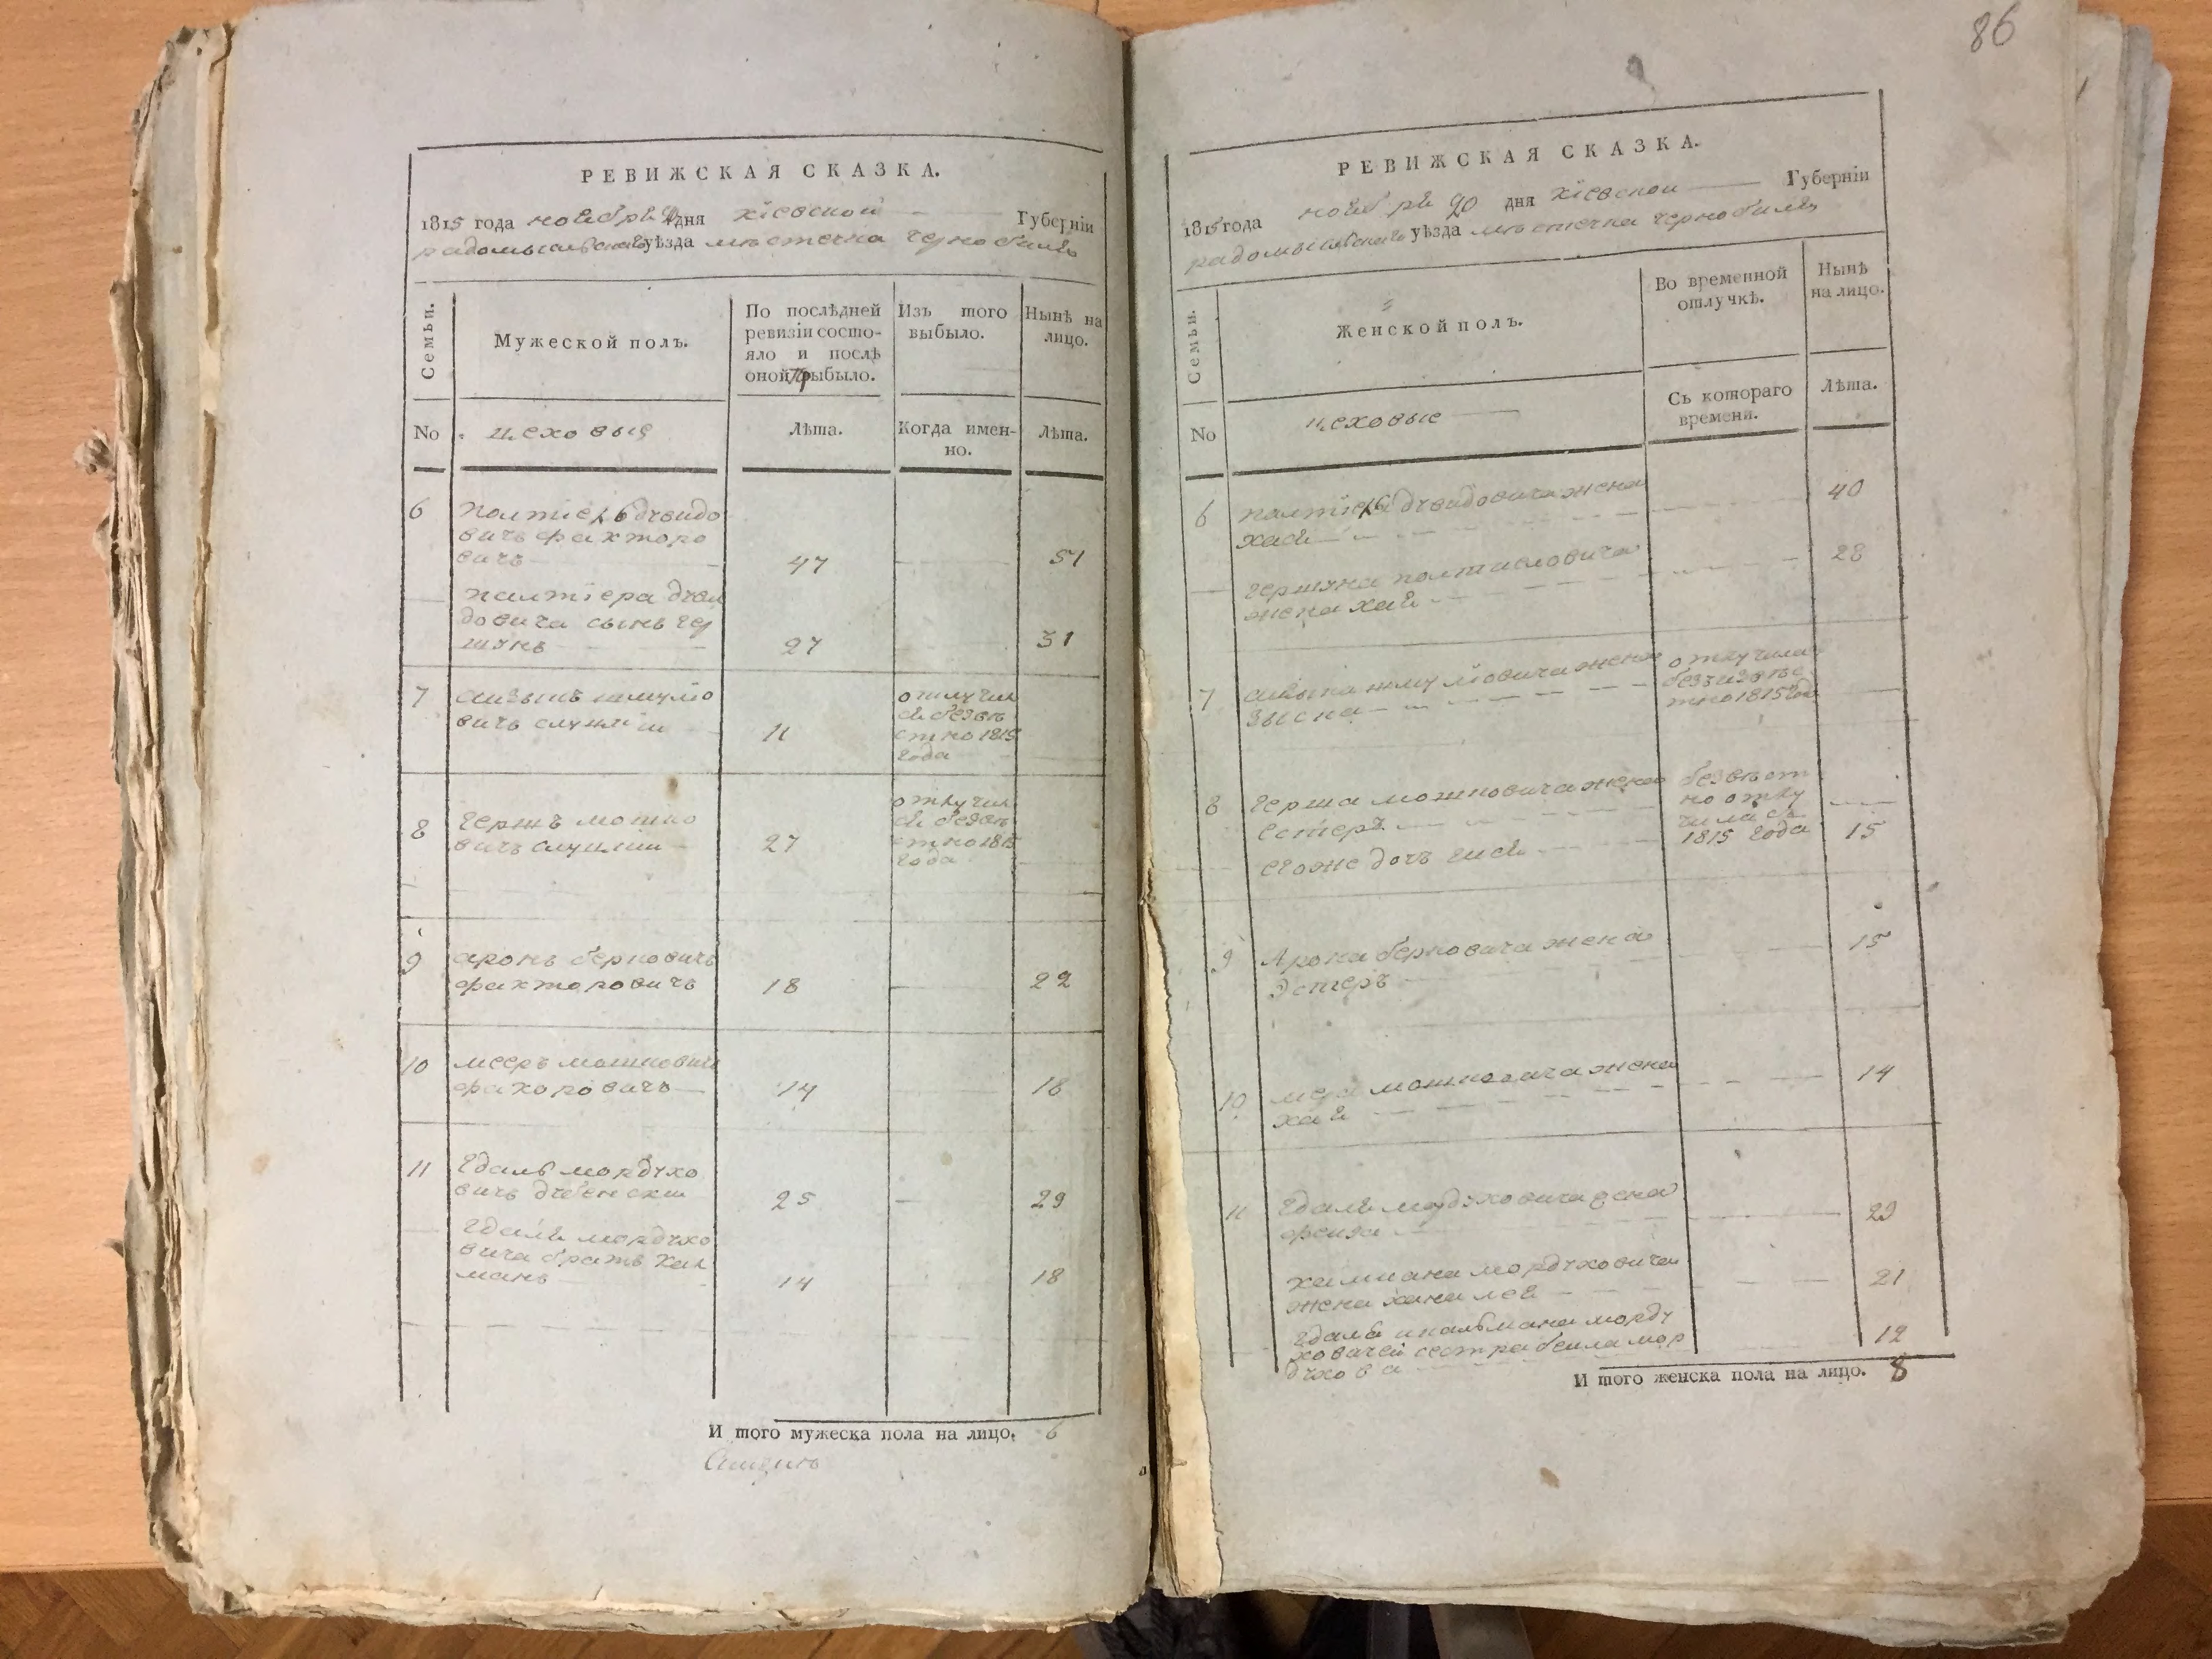 РЕВИЖСКАЯ СКАЗКА.
1815 года ноября дня кіевской Губерніи
радомысльскаго уѣзда мѣстечка чернобиля
Семьи.
Мужеской полъ.
По послѣдней
ревизіи состо-
яло и послѣ
оной прибыло.
Изъ того
выбыло.
Нынѣ на
лицо.
No цеховыя
Лѣта.
Когда имен-
но.
Лѣта.
6 палтіель дувидо
вичъ факторо
вичъ 47 51
палтіера дуви
довича сынъ гер
шунъ 27 31
7 айзыкъ шмуліо
вичъ 11
отлучил
ся безвѣ
стно 1815
года
8 гершъ мошко
вичъ 27
отлучил
ся безвѣ
стно 1815
года
9 аронъ берковичъ
факторовичъ 18 22
10 мееръ мошковичъ
факоровичъ 14 18
11 гдаль мордухо
вичъ дубенскии 25 29
гдаля мордухо
вича братъ хал
манъ 14 18
И того мужеска пола на лицо. 6
86
РЕВИЖСКАЯ СКАЗКА.
1815 года ноября 20 дня кіевской Губерніи
радомысльскаго уѣзда мѣстечка чернобиля
Семьи.
Женской полъ.
Во временной
отлучкѣ.
Нынѣ
на лицо.
No цеховые
Съ котораго
времени.
Лѣта.
6 палтіеля дувидовича жена
хая 40
гершуна палтиеловича
жена хая 28
7 айзыка шмуліовича жена
зысна
отлучила
безъизвѣс
тно 1815 года
8 герша мошковича жена
естеръ
безвѣст
но отлу
чилась
1815 года
егоже дочъ гися 15
9 Арона берковича жена
Эстеръ 15
10 мера мошковича жена
хая 14
11 гдаля мордуховича жена
фейга 29
халмана мордуховича
жена хана лея 21
гдаля ихальмана морду
ховичей сестра беила мор
духова 12
И того женска пола на лицо. 8